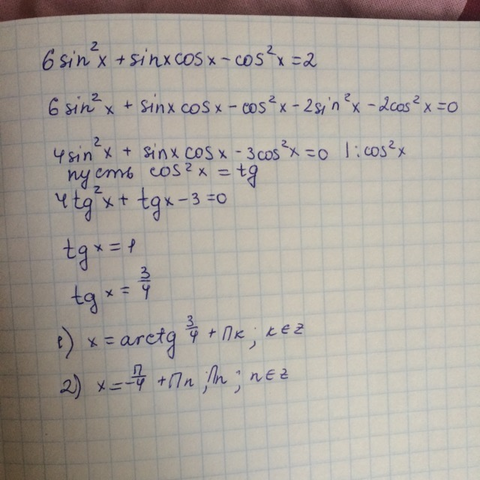 6sin²x + sinxcosx - cos²x = 2
6sin²x + sinx cosx - cos²x - 2sin²x - 2cos²x = 0
4sin²x + sinx cosx - 3cos²x = 0 | : cos²x
пусть cos²x = tg
4tg²x + tgx - 3 = 0
tgx = 1
tgx = 3/4
1) x = arctg 3/4 + Пк; к ∈ z
2) x = -П/4 + Пn; Пn; n ∈ z